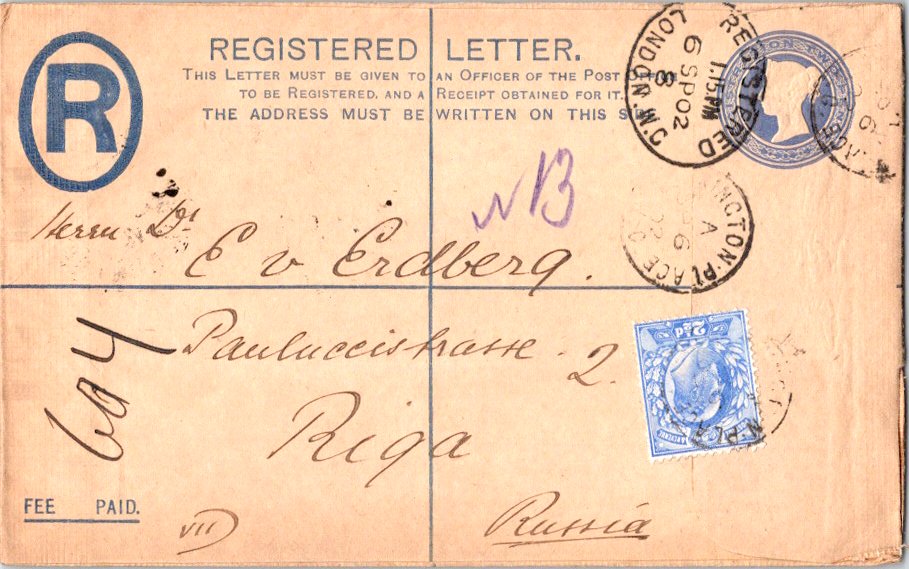 REGISTERED LETTER.
THIS LETTER MUST BE GIVEN TO AN OFFICER OF THE POST
TO BE REGISTERED, AND A RECEIPT OBTAINED FOR IT.
THE ADDRESS MUST BE WRITTEN ON THIS
R
REGISTERED
1.15PM
6 SP 02
8
LONDON. W.C.
N B
INGTON·PLACE
A
6
02
Herrn Dr
E v Erdberg.
Pauluccistrasse. 2.
Riga
Russia
604
2½d
FEE PAID.
VII)